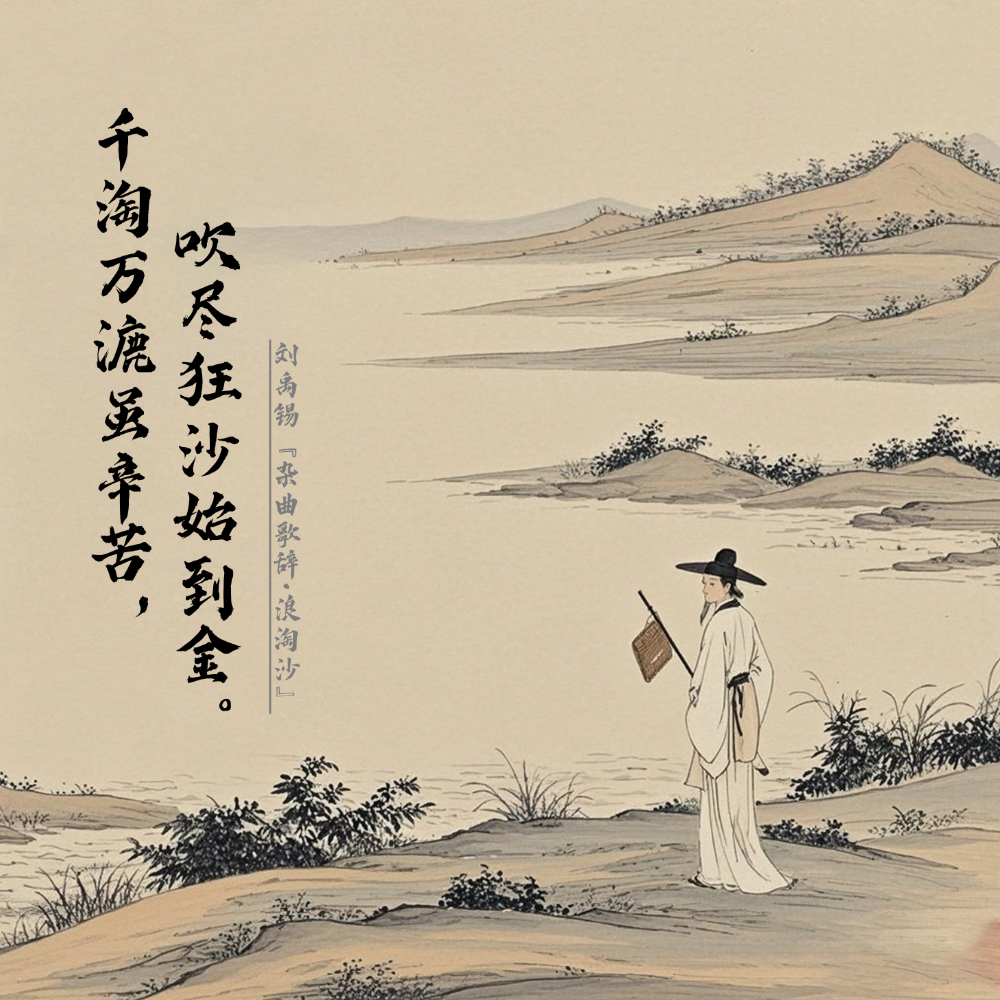 千淘万漉虽辛苦，
吹尽狂沙始到金。
刘禹锡『杂曲歌辞·浪淘沙』